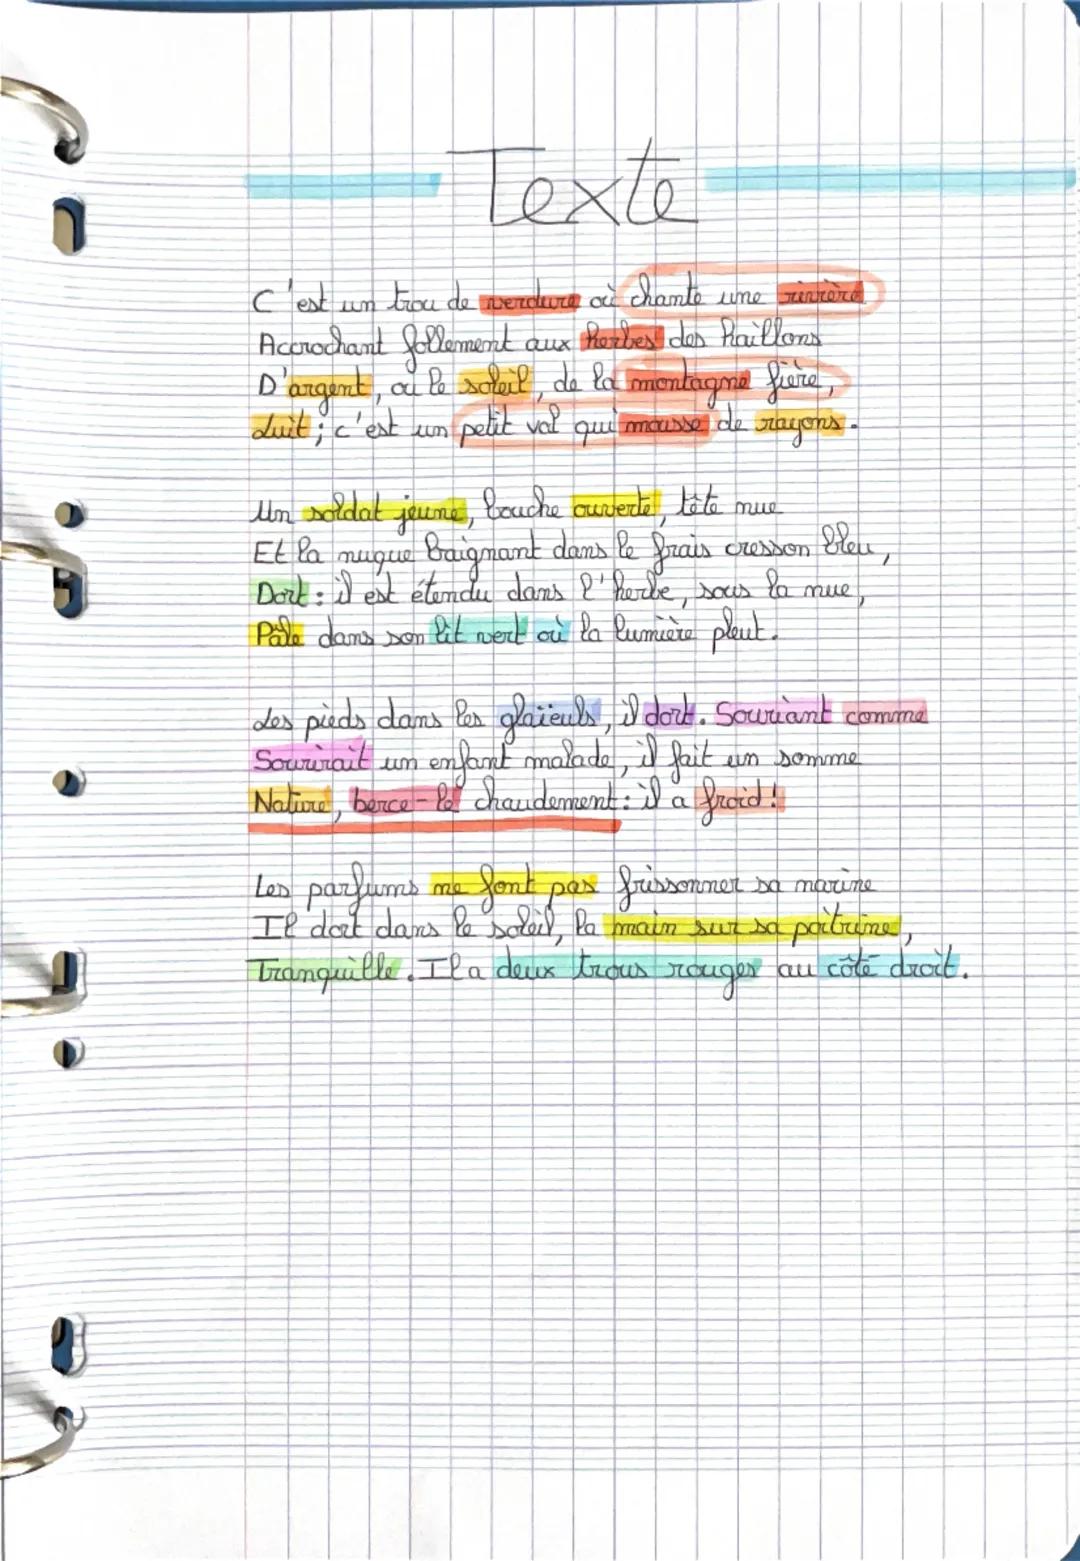 Texte
C'est un trou de verdure où chante une rivière
Accrochant follement aux herbes des haillons
D'argent, où le soleil, de la montagne fière,
Luit; c'est un petit val qui mousse de rayons.
Un soldat jeune, bouche ouverte, tête nue
Et la nuque baignant dans le frais cresson bleu,
Dort : il est étendu dans l'herbe, sous la nue,
Pâle dans son lit vert où la lumière pleut.
Les pieds dans les glaïeuls, il dort. Souriant comme
Sourirait un enfant malade, il fait un somme
Nature, berce-le chaudement : il a froid !
Les parfums ne font pas frissonner sa narine
Il dort dans le soleil, la main sur sa poitrine,
Tranquille. Il a deux trous rouges au côté droit.